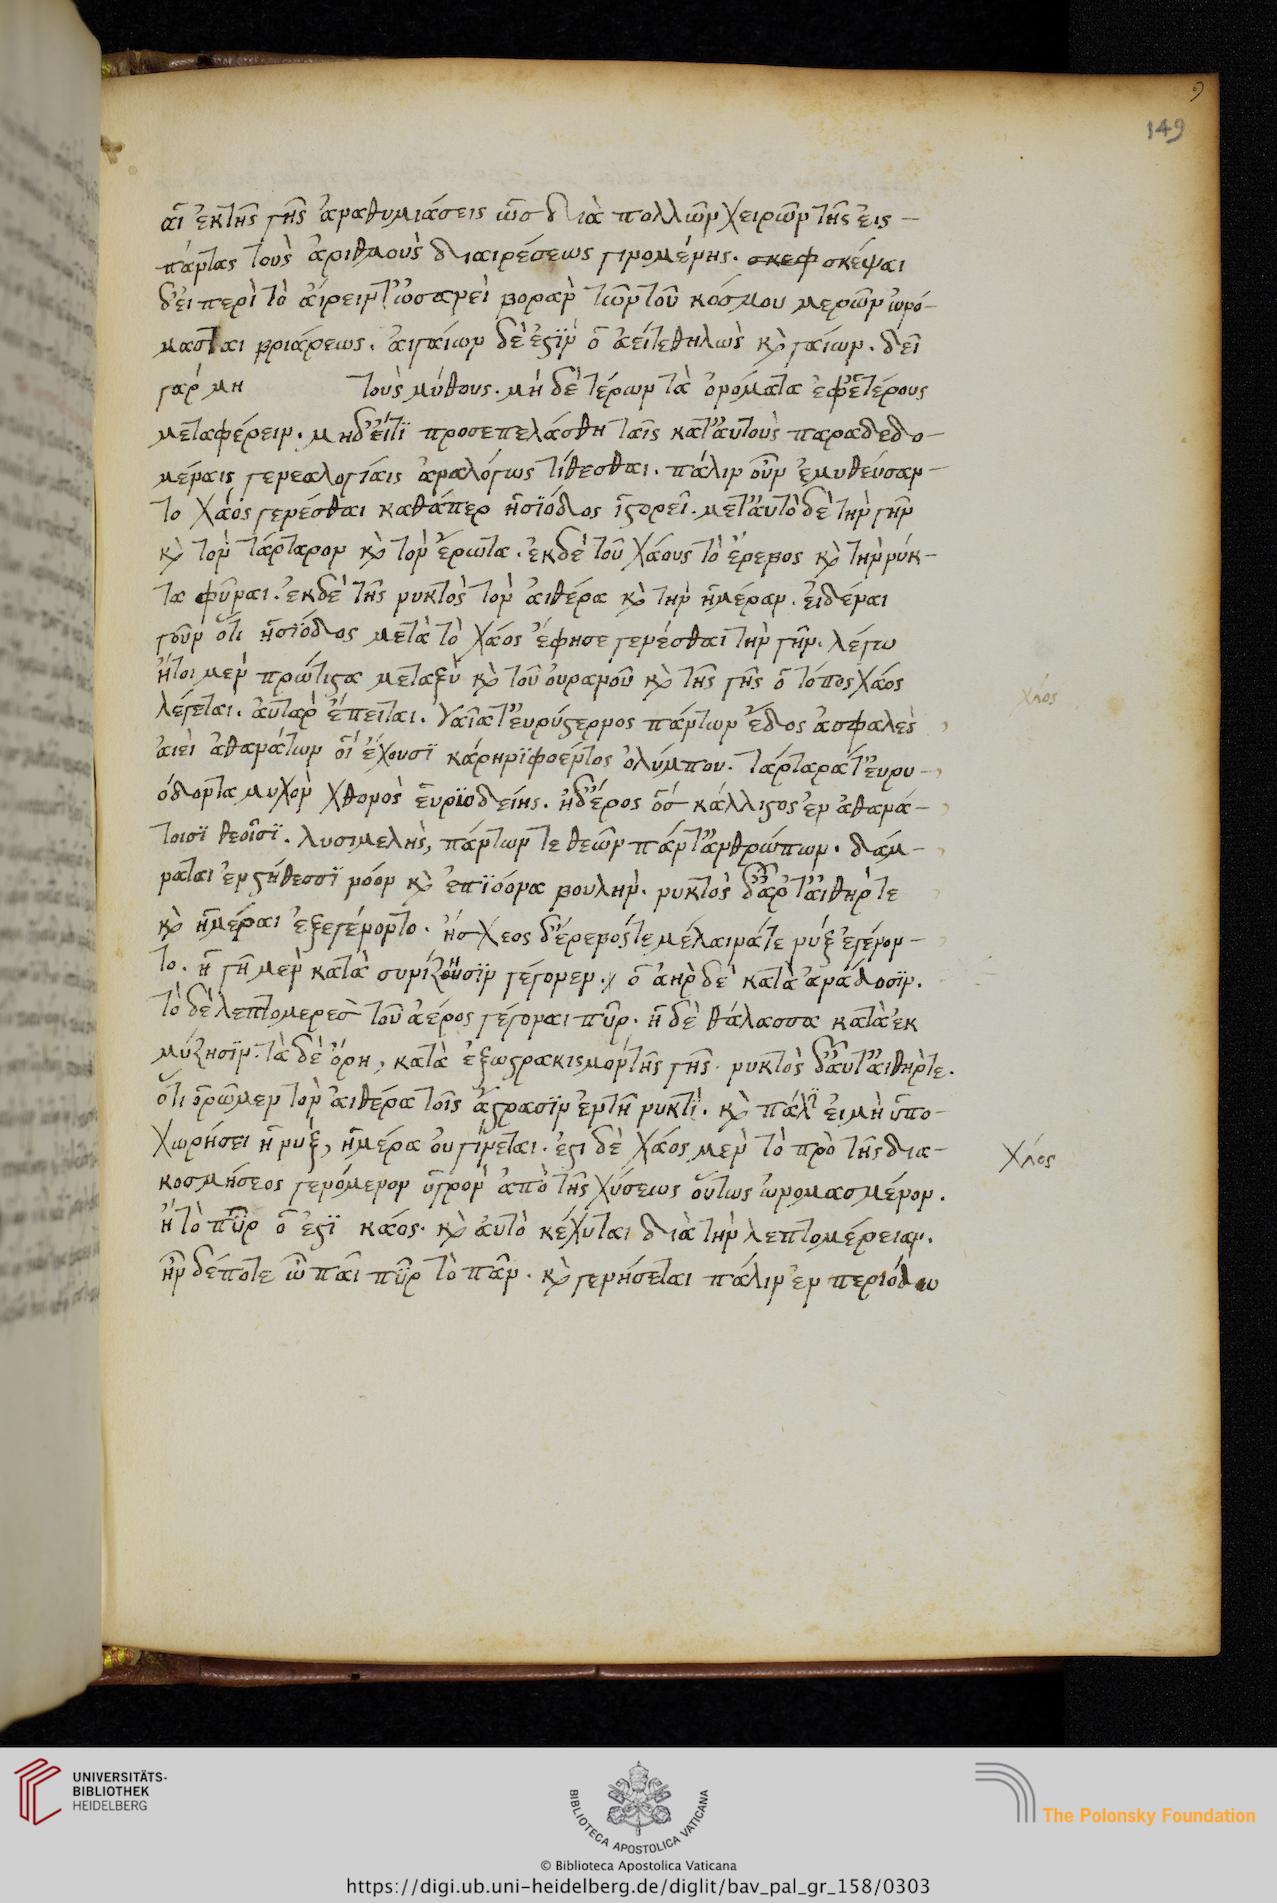 9
149
αἱ ἐκ τῆς γῆς ἀναθυμιάσεις ὡσ διὰ πολλῶν χειρῶν τῆς εἰς
πάντας τοὺς ἀριθμοὺς διαιρέσεως γινομένης. σκεφ σκέψαι
δεῖ περὶ τὸ αἴρειν τ' ὡσανεὶ βορὰν τῶν τοῦ κόσμου μερῶν ὠνό-
μασται βριάρεως. αἰγαίων δέ ἐστιν ὁ ἀεί τεθηλὼς καὶ γαίων. δεῖ
γάρ μη τοὺς μύθους. μὴ δ' ἑτέρων τὰ ὀνόματα ἐφ' ἑτέρους
μεταφέρειν. μηδ' εἴ τι προσεπελάσθη ταῖς κατ' αὐτοὺς παραδεδο-
μέναις γενεαλογίαις ἀναλόγως τίθεσθαι. πάλιν οὖν ἐμυθεύσαν
το χάος γενέσθαι καθάπερ ἡσίοδος ἱστορεῖ. μετ' αὐτὸ δὲ τὴν γῆν
καὶ τὸν τάρταρον καὶ τὸν ἔρωτα. ἐκ δὲ τοῦ χάους τὸ ἔρεβος καὶ τὴν νύκ-
τα φῦναι. ἐκ δὲ τῆς νυκτὸς τὸν αἰθέρα καὶ τὴν ἡμέραν. εἰδέναι
γοῦν ὅτι ἡσίοδος μετὰ τὸ χάος ἔφησε γενέσθαι τὴν γῆν. λέγω
ἤτοι μεν πρώτιστα μεταξὺ καὶ τοῦ οὐρανοῦ καὶ τῆς γῆς ὁ τόπος χάος
χάος
λέγεται. αὐτὰρ ἔπειται. γαῖα τ' εὐρύστερνος πάντων ἕδος ἀσφαλὲς
αἰεὶ ἀθανάτων οἵ ἔχουσϊ κάρη νϊφοέντος ὀλύμπου. τάρταρά τ' εὐρυ-
όδοντα μυχὸν χθονὸς εὐρϊοδείης. ἠδ' ἔρος ὅσ κάλλιστος ἐν ἀθανά-
τοισϊ θεοῖσϊ. λυσιμελὴς, πάντων τε θεῶν πάντ' ἀνθρώπων. δάμ-
ναται ἐν στήθεσσϊ νόον καὶ ἐπϊ όονα βουλήν. νυκτὸς δ' ἀρ τ' αἰθὴρ τε
καὶ ἡμέραι ἐξεγένοντο. ἠσ χεος δ' ἔρεβός τε μέλαινά τε νύξ ἐγένον-
το. ἡ γῆ μεν κατὰ συνίζουσϊν γέγονεν. ὁ ἀὴρ δὲ κατὰ ἀνάδοσϊν.
τὸ δὲ λεπτομερὲσ τοῦ ἀέρος γέγοναι πῦρ. ἡ δὲ θάλασσα κατὰ ἐκ
μύζησϊν. τὰ δὲ ὄρη, κατὰ ἐξωστρακισμὸν τῆς γῆς. νυκτὸς δ' αὐτ' αἰθὴρ τε.
ὅτι ὁρῶμεν τὸν αἰθέρα τοῖς ἄστρασϊν ἐν τῆ νυκτί. καὶ πάλϊ εἰ μὴ ὑπο-
χωρήσει ἡ νυξ, ἡμέρα οὐ γίνεται. ἔστι δὲ χάος μὲν τὸ πρὸ τῆς δια-
χάος
κοσμήσεος γενόμενον ὑγρὸν ἀπὸ τῆς χύσεως οὕτως ὠνομασμένον.
ἢ τὸ πῦρ ὅ ἐστϊ κάος. καὶ αὐτὸ κέχυται διὰ τὴν λεπτομέρειαν.
ἦν δέποτε ὦ παῖ πῦρ τὸ πᾶν. καὶ γενήσεται πάλιν ἐν περιόδω
UNIVERSITÄTS-
BIBLIOTHEK
HEIDELBERG
BIBLIOTECA APOSTOLICA VATICANA
The Polonsky Foundation
© Biblioteca Apostolica Vaticana
https://digi.ub.uni-heidelberg.de/diglit/bav_pal_gr_158/0303